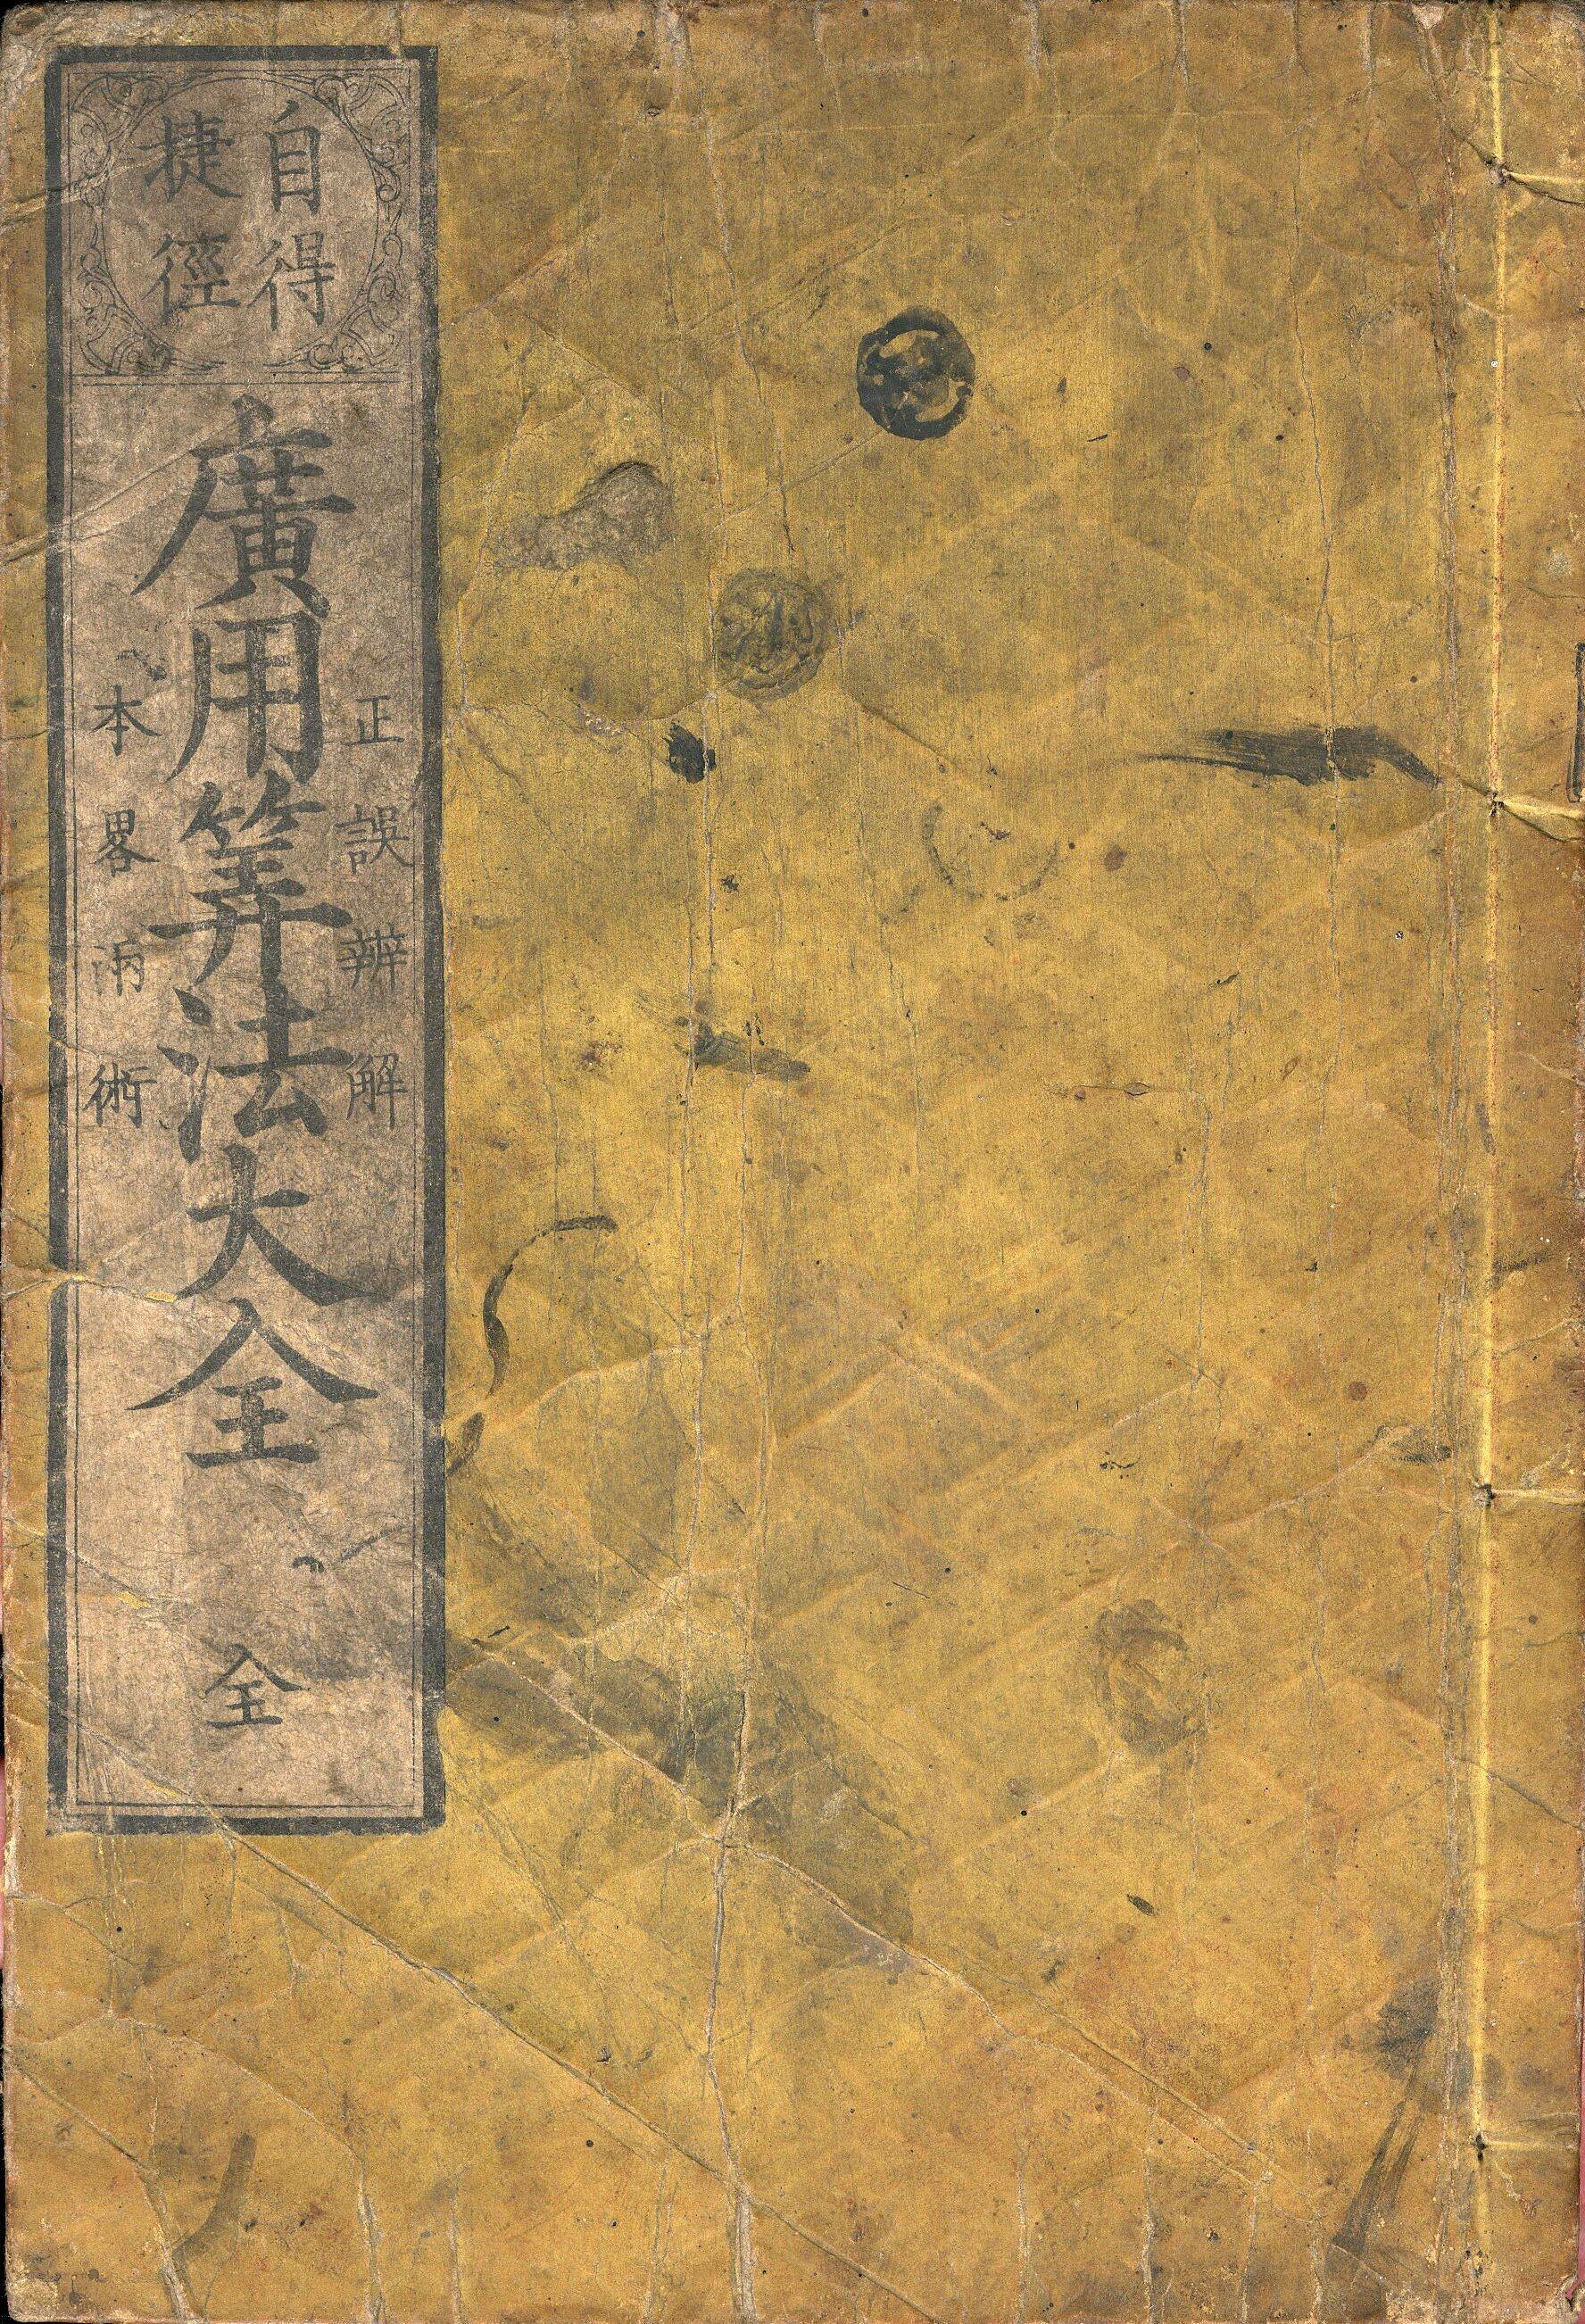 自得
捷徑
正誤辨解
廣用筭法大全
本畧兩術
全